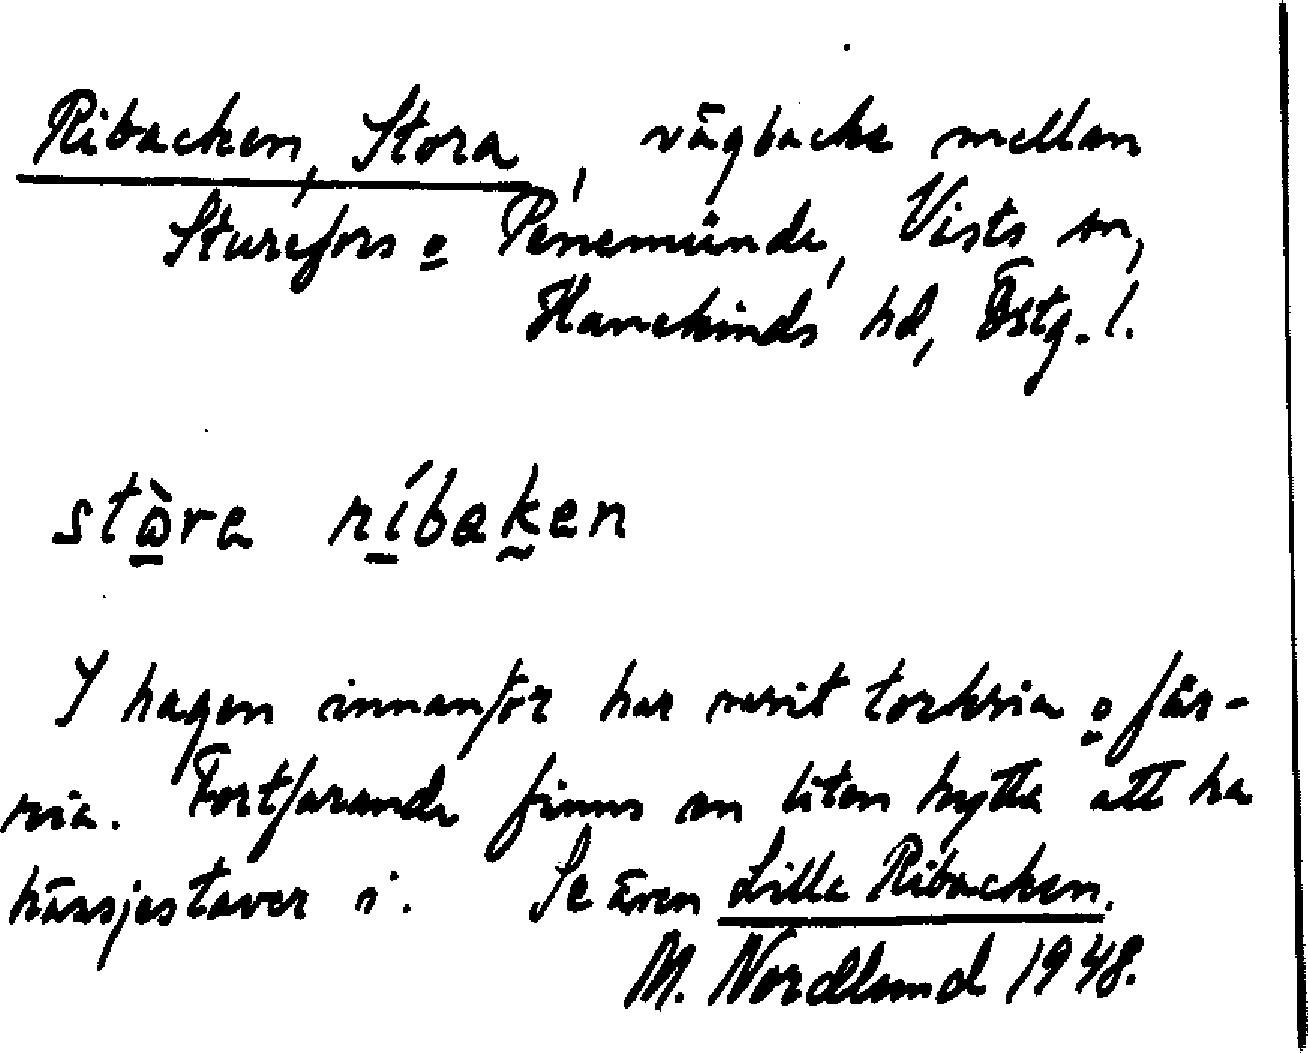 Ribacken, Stora, vägbacke mellan
Sturefors o Penemünde, Vists sn,
Hanekinds hd, Östg. l.
stɷ̀ra ríbaken
I hagen innanför har varit torkria o får-
ria. Fortfarande finns en liten hytta att ha
hässjestaver i. Se även Lilla Ribacken.
M. Nordlund 1948.